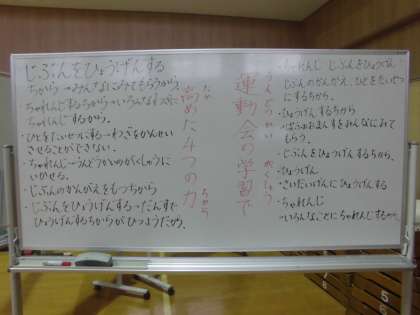 運動会の学習で
うんどうかい がくしゅう
高めた4つの力
たか ちから
じぶんをひょうげんする
ちから→みんなにみてもらうから。
ちゃれんじするちから→いろんなわざに
ちゃれんじするから。
・ひとをたいせつにする→わざをかんせい
させることができない。
・ちゃれんじ→うんどうかいのがくしゅうに
いかせる。
・じぶんのかんがえをもつちから
・じぶんをひょうげんする→だんすで
ひょうげんするちからがひつようだから。
・ちゃれんじ じぶんをひょうげん
じぶんのかんがえ、ひとをたいせつ
にするちから。
・ひょうげんするちから
→ぱふぉおまんすをみんなにみて
もらう。
・じぶんをひょうげんするちから、
・ひょうげん
・さいだいげんにひょうげんする
・ちゃれんじ
・いろんなことにちゃれんじするから。